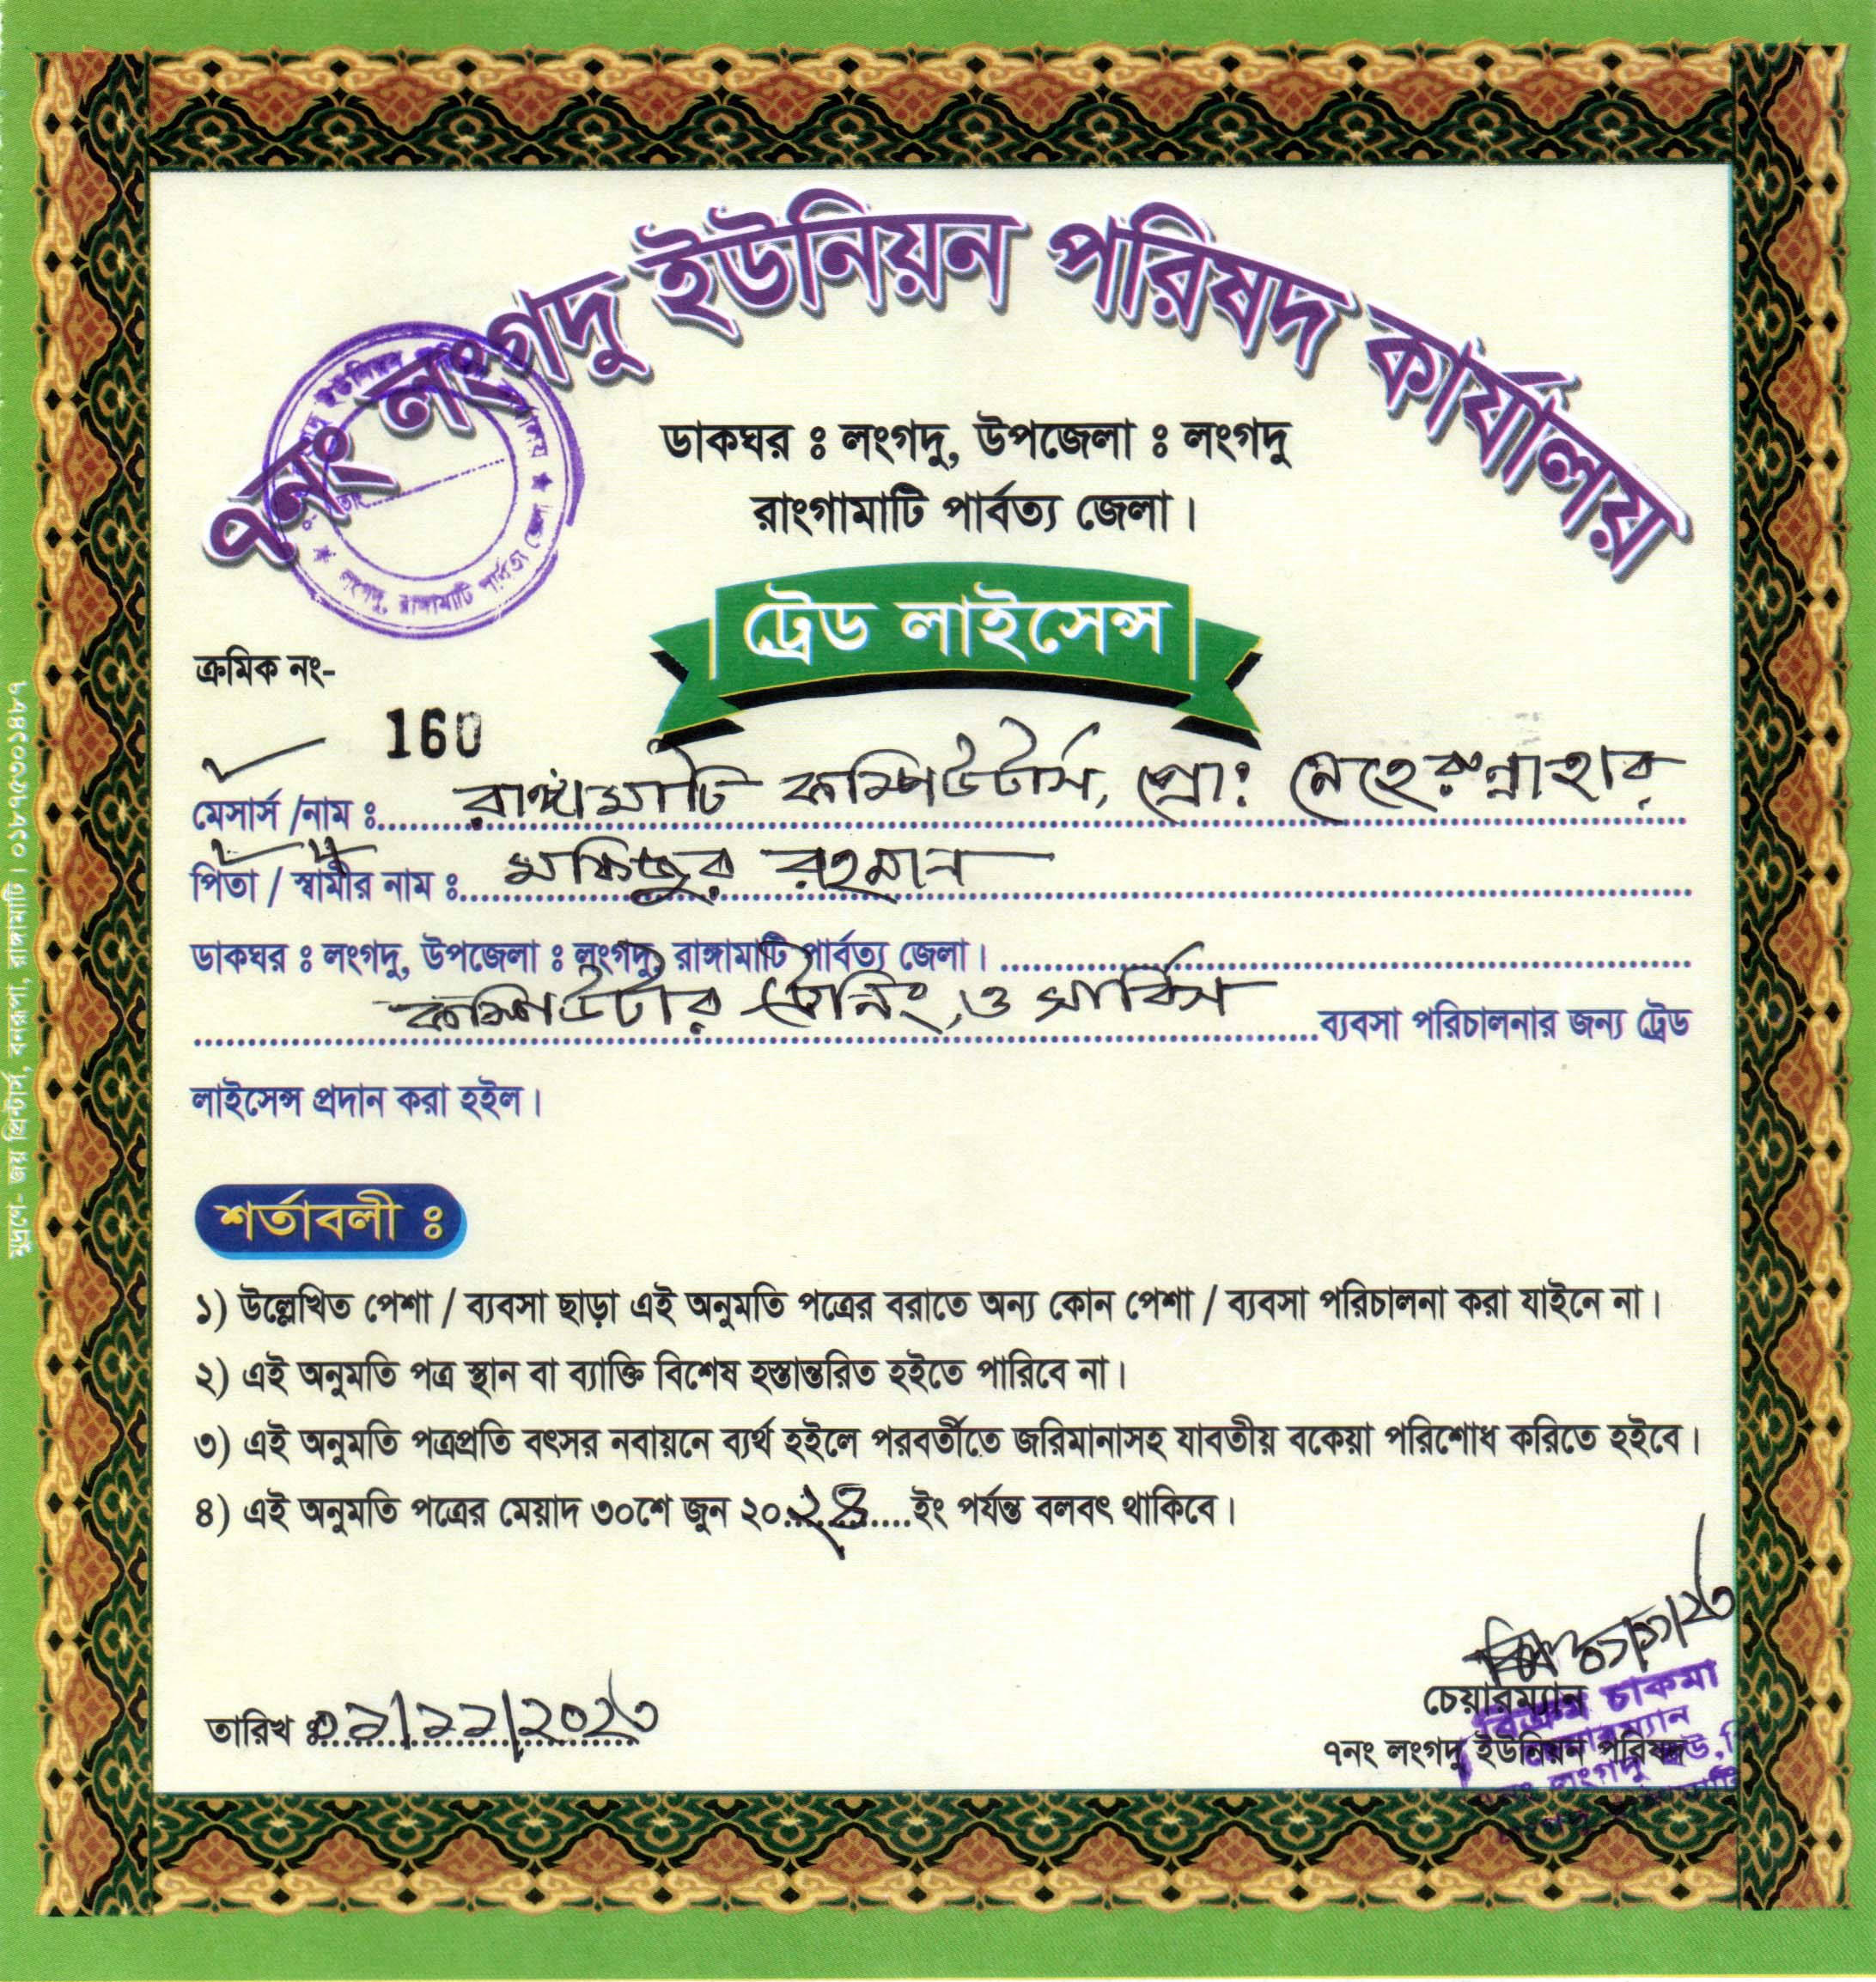 ৭নং লংগদু ইউনিয়ন পরিষদ কার্যালয়
ডাকঘর ঃ লংগদু, উপজেলা ঃ লংগদু
রাংগামাটি পার্বত্য জেলা।
ট্রেড লাইসেন্স
লংগদু, রাঙ্গামাটি পার্বত্য জেলা
ক্রমিক নং-
160
মেসার্স /নাম ঃ রাঙ্গামাটি কম্পিউটার্স, প্রো: মেহেরুন্নাহার
পিতা / স্বামীর নাম ঃ মফিজুর রহমান
ডাকঘর ঃ লংগদু, উপজেলা ঃ লংগদু, রাঙ্গামাটি পার্বত্য জেলা।
কম্পিউটার ট্রেনিং ও সার্বিস ব্যবসা পরিচালনার জন্য ট্রেড
লাইসেন্স প্রদান করা হইল।
শর্তাবলী ঃ
১) উল্লেখিত পেশা / ব্যবসা ছাড়া এই অনুমতি পত্রের বরাতে অন্য কোন পেশা / ব্যবসা পরিচালনা করা যাইনে না।
২) এই অনুমতি পত্র স্থান বা ব্যাক্তি বিশেষ হস্তান্তরিত হইতে পারিবে না।
৩) এই অনুমতি পত্রপ্রতি বৎসর নবায়নে ব্যর্থ হইলে পরবর্তীতে জরিমানাসহ যাবতীয় বকেয়া পরিশোধ করিতে হইবে।
৪) এই অনুমতি পত্রের মেয়াদ ৩০শে জুন ২০২৪ ইং পর্যন্ত বলবৎ থাকিবে।
তারিখ ঃ ০১/১১/২০২৩
চেয়ারম্যান
৭নং লংগদু ইউনিয়ন পরিষদ
বিক্রম চাকমা
চেয়ারম্যান
মুদ্রণে- জয় প্রিন্টার্স, বনরূপা, রাঙ্গামাটি। ০১৮৭৫৩০১৪৮৭